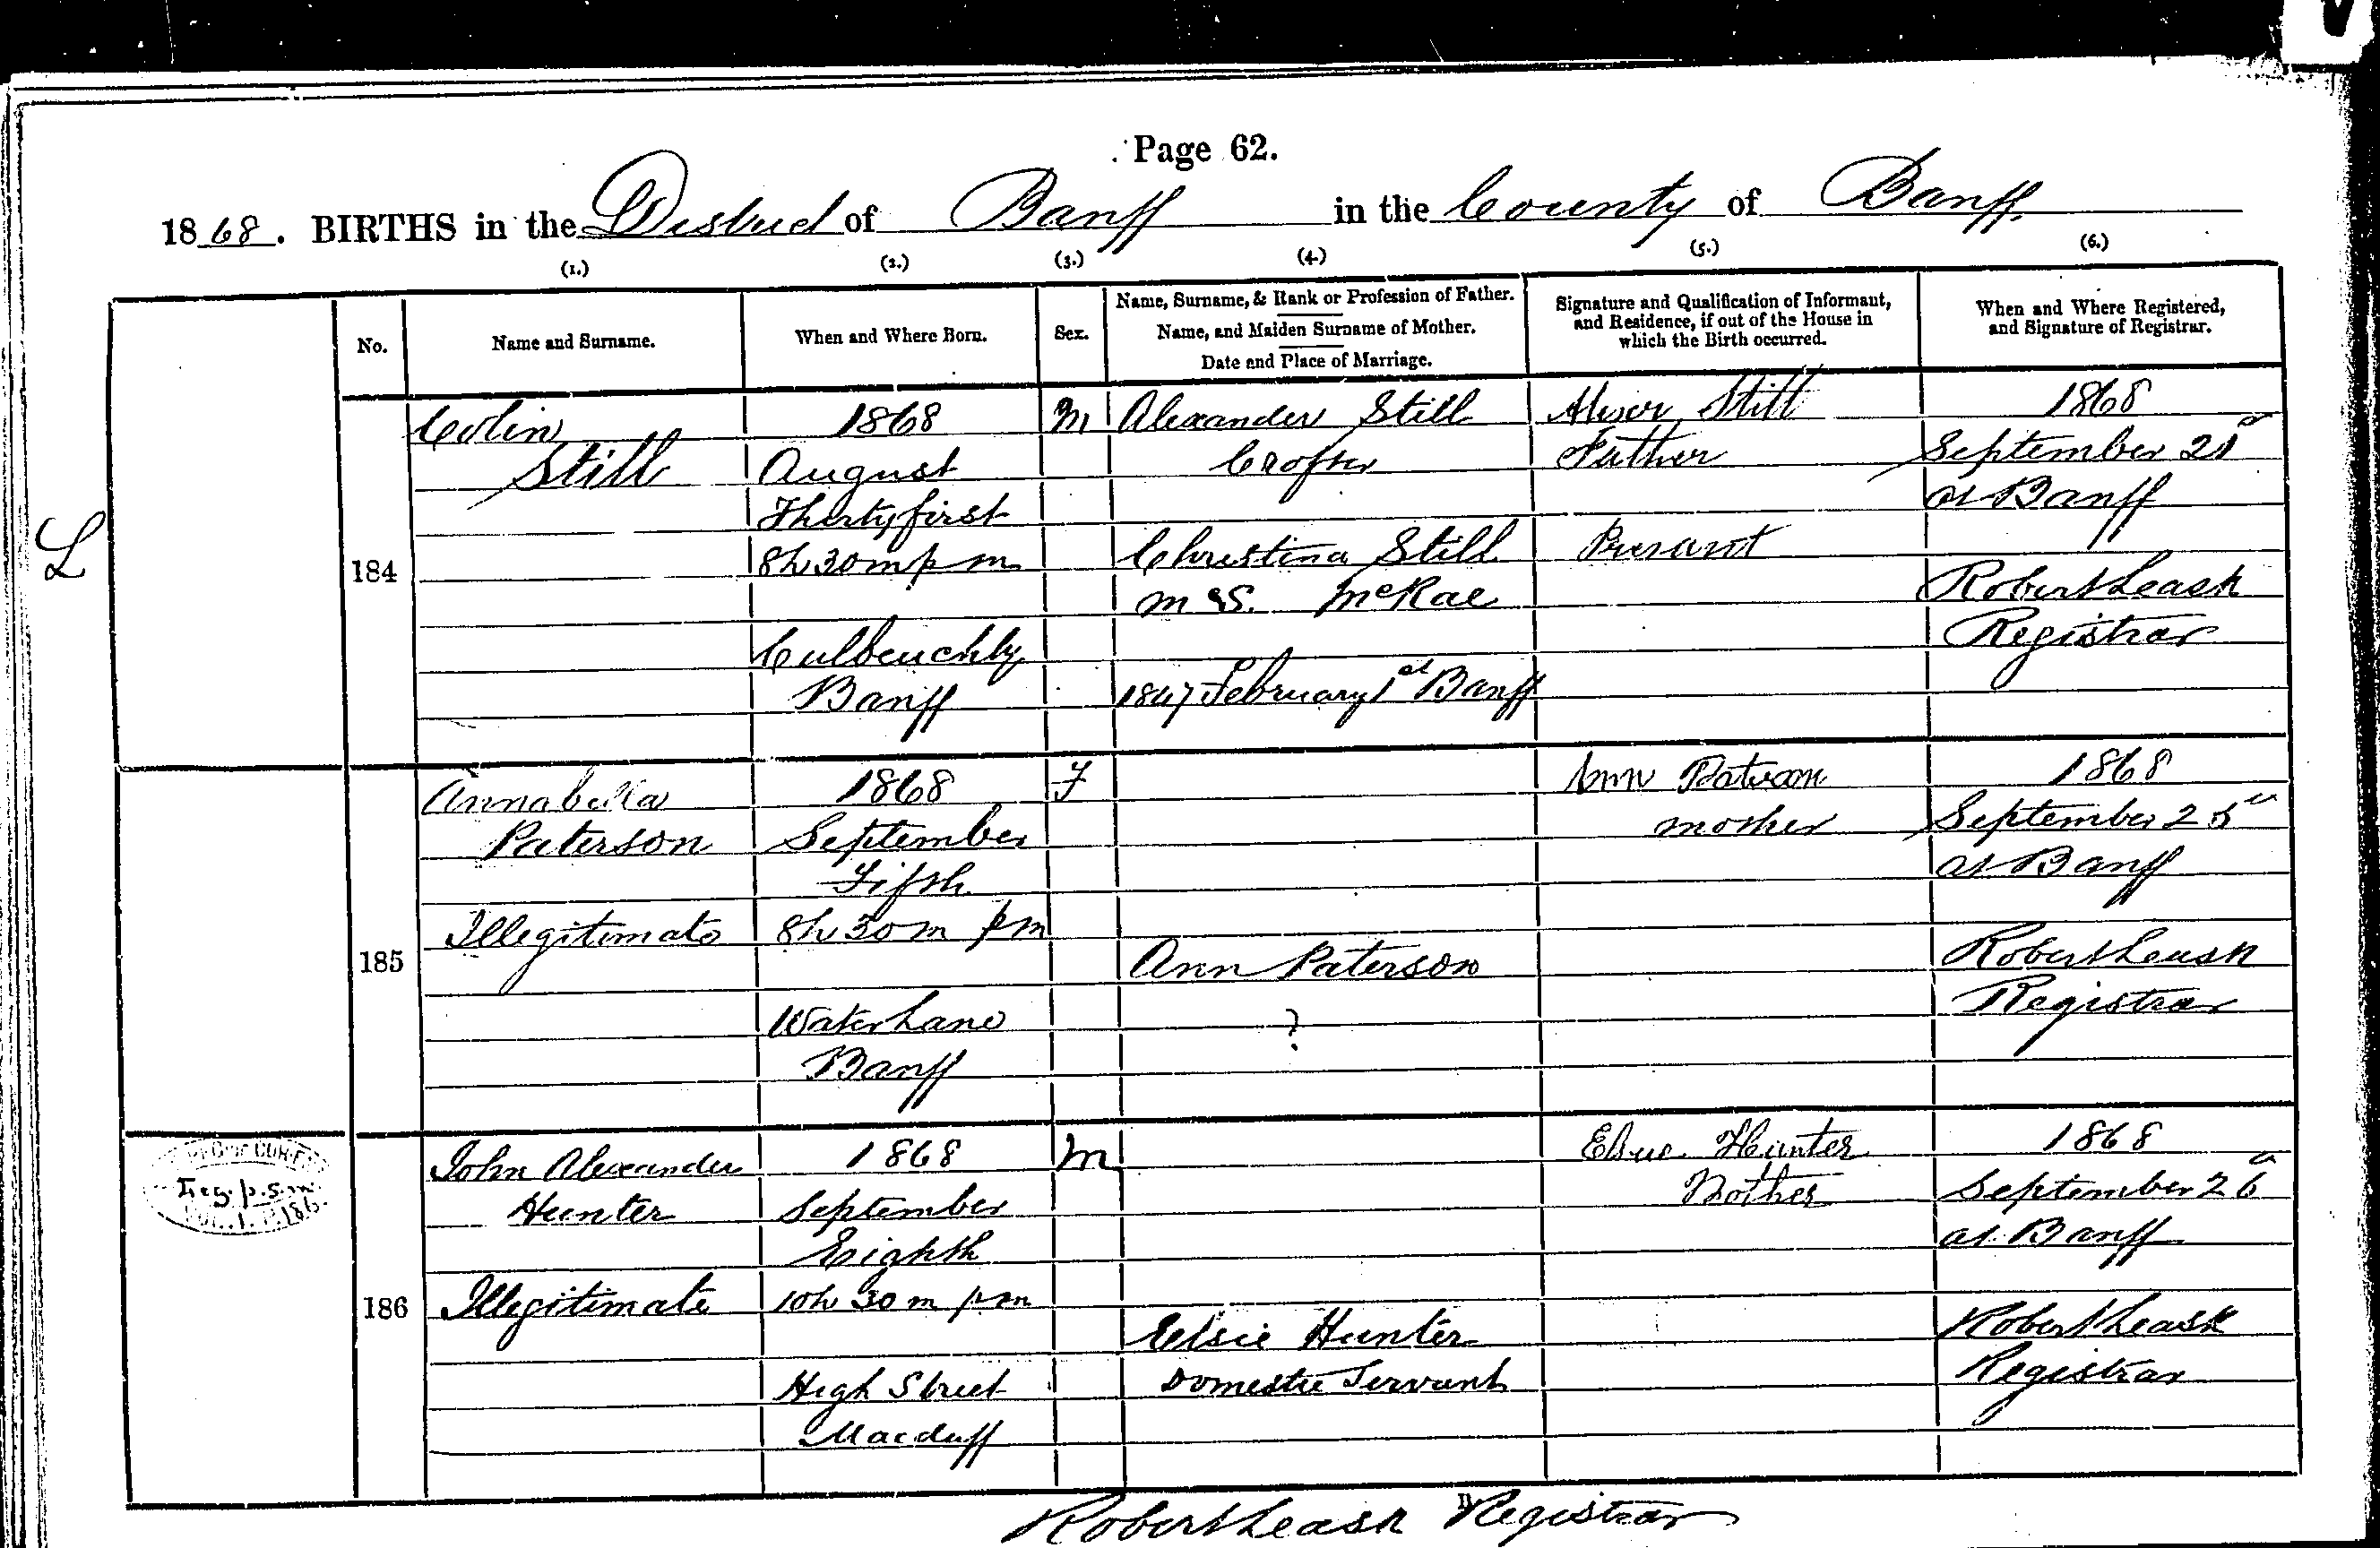 Page 62.
1868. BIRTHS in the District of Banff in the County of Banff.
(1.) (2.) (3.) (4.) (5.) (6.)
No.
Name and Surname.
When and Where Born.
Sex.
Name, Surname, & Rank or Profession of Father.
Name, and Maiden Surname of Mother.
Date and Place of Marriage.
Signature and Qualification of Informant,
and Residence, if out of the House in
which the Birth occurred.
When and Where Registered,
and Signature of Registrar.
L
184
Colin
Still
1868
August
Thirty first
8h 30m p m
Culbeuchly
Banff
M
Alexander Still
Crofter
Christina Still
m.S. McRae
1847 February 1st Banff
Still
Father
Present
1868
September 21
at Banff
Robert Leask
Registrar
185
Annabella
Paterson
Illegitimate
1868
September
Fifth
8h 30m pm
Water Lane
Banff
F
Ann Paterson
?
Ann Paterson
mother
1868
September 25
at Banff
Robert Leask
Registrar
186
John Alexander
Hunter
Illegitimate
1868
September
Eighth
10h 30m pm
High Street
Macduff
M
Elsie Hunter
Domestic Servant
Hunter
Mother
1868
September 26
at Banff
Robert Leask
Registrar
Robert Leask Registrar